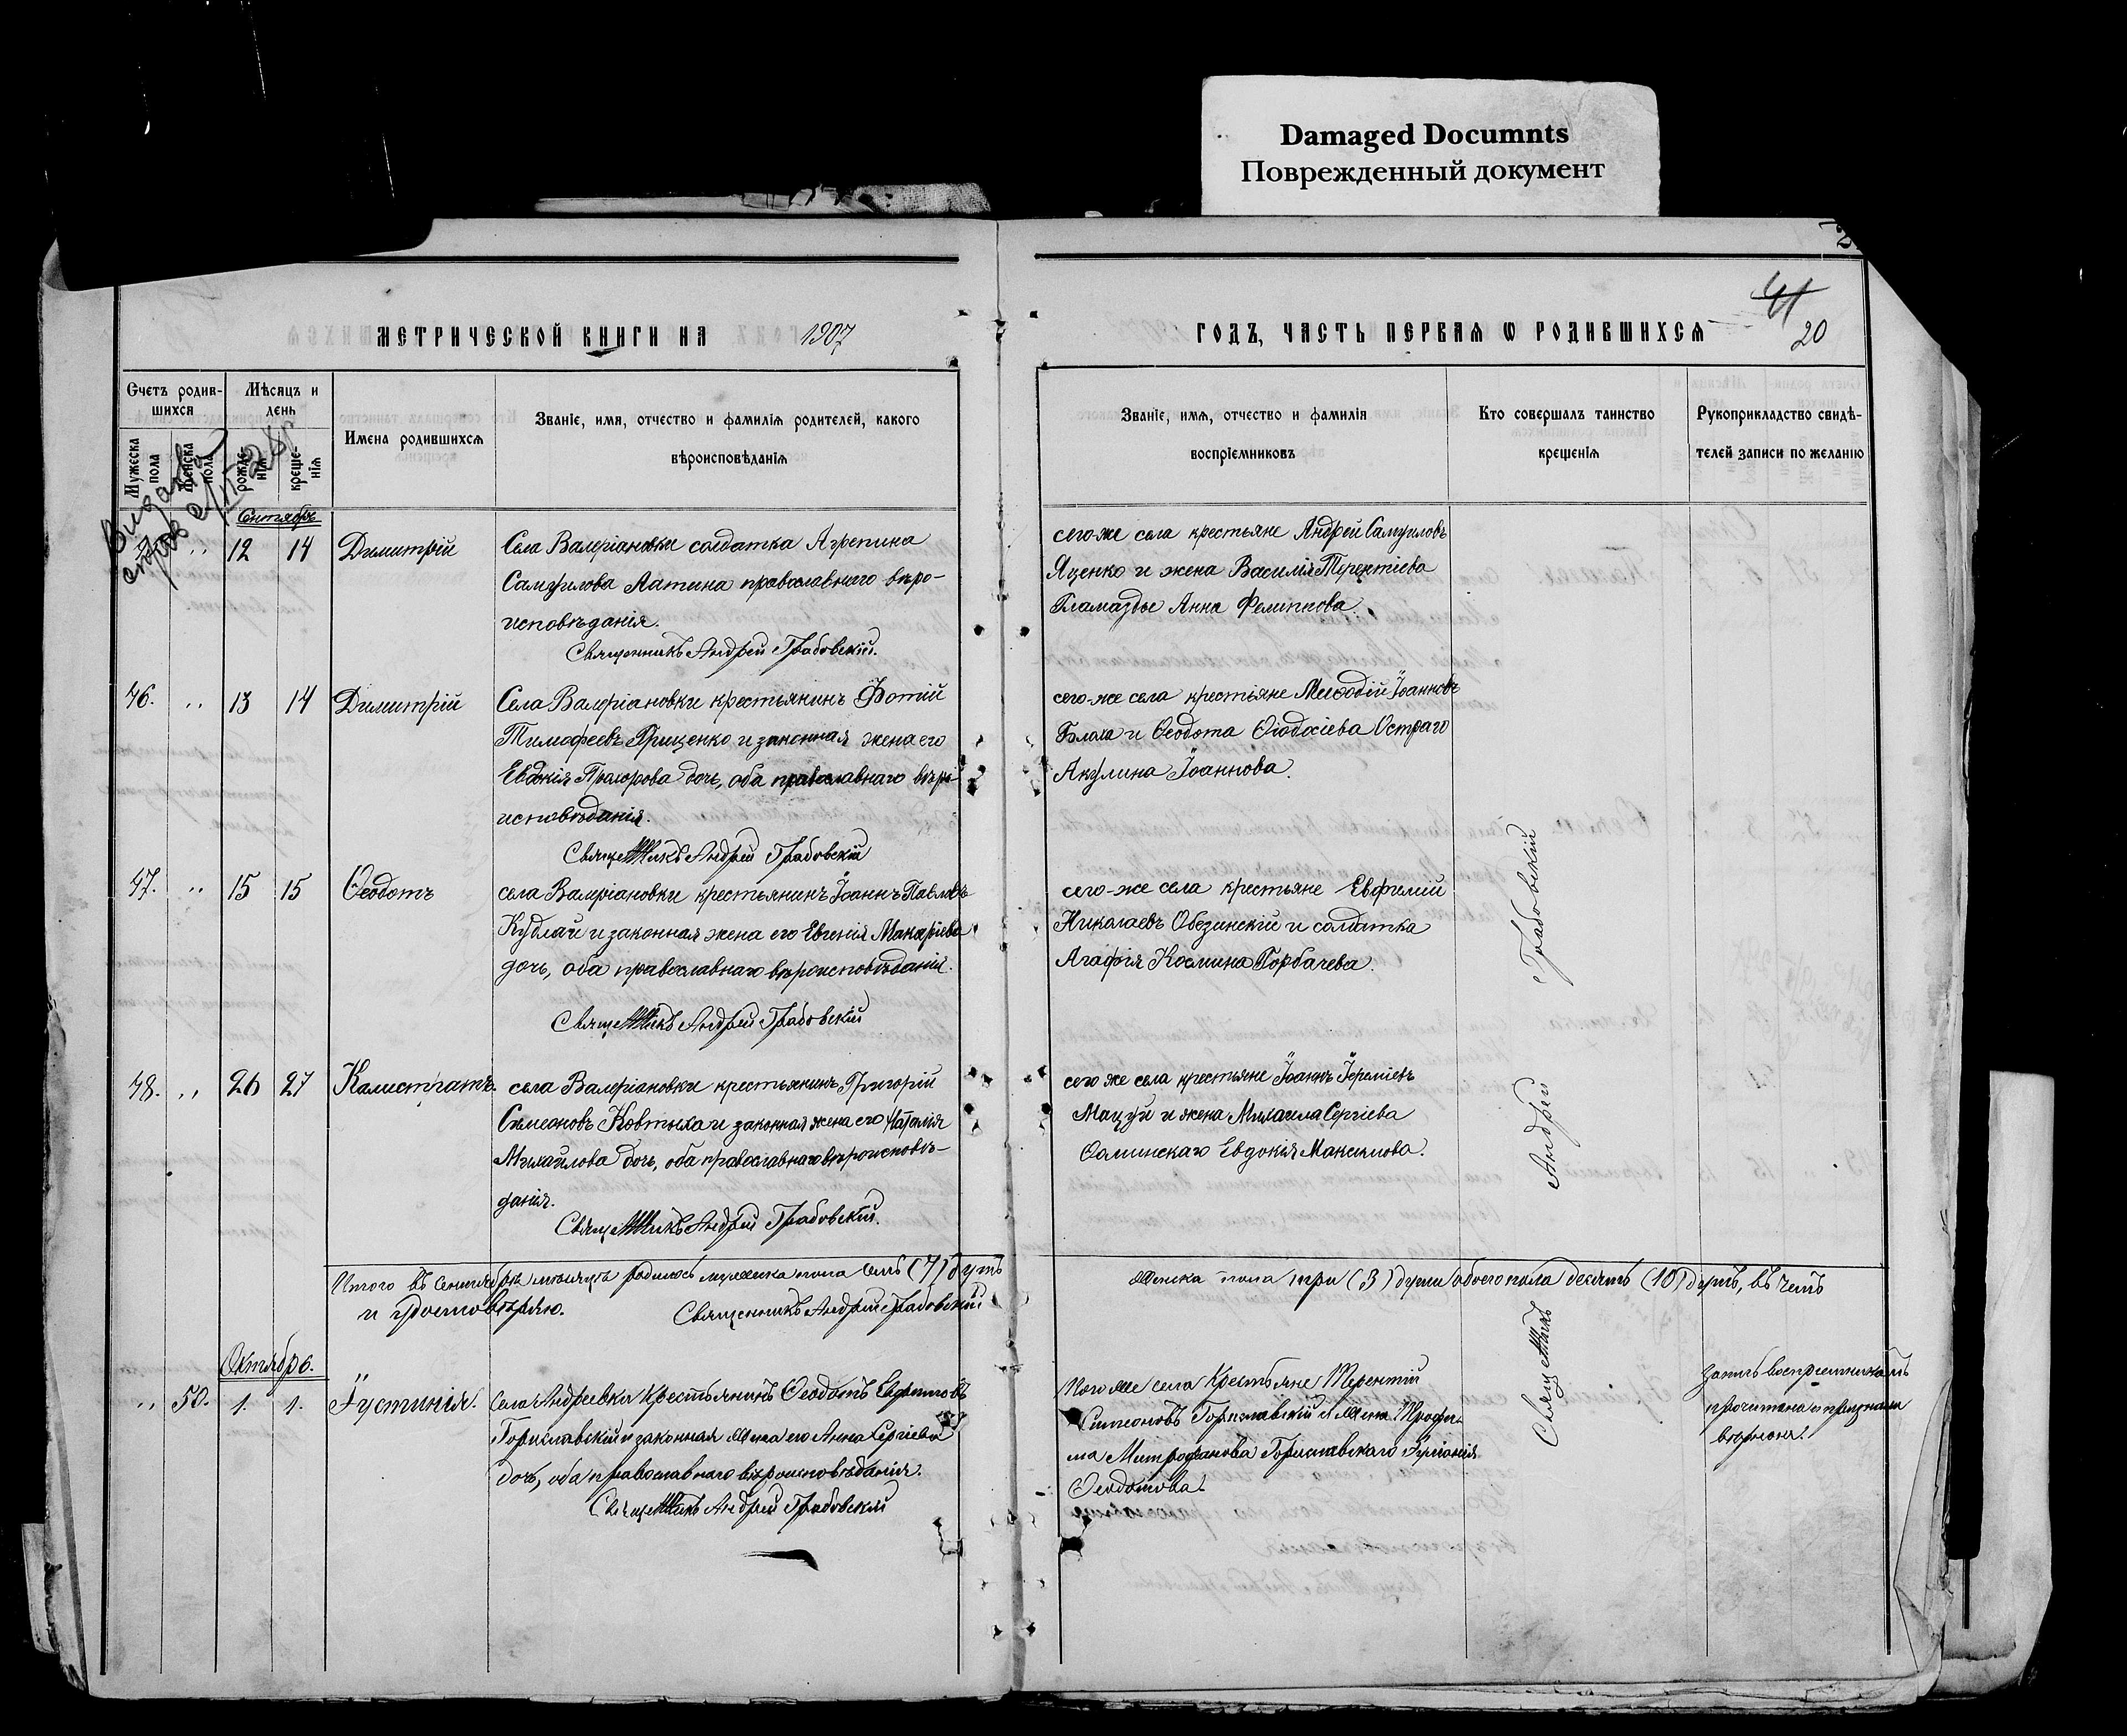 Damaged Documnts
Поврежденный документ
41
20
МЕТРИЧЕСКОЙ КНИГИ НА 1907
ГОДЪ, ЧАСТЬ ПЕРВАЯ Ѡ РОДИВШИХСЯ
Счетъ родив-
шихся
Мужеска пола
Женска пола
Мѣсяцъ и
день
рожде-
нія
креще-
нія
Имена родившихся
Званіе, имя, отчество и фамилія родителей, какого
вѣроисповѣданія
Званіе, имя, отчество и фамилія
воспріемниковъ
Кто совершалъ таинство
крещенія
Рукоприкладство свидѣ-
телей записи по желанію
Сентябрь
12 14 Димитрій
Села Валеріановки солдатка Агрепина
Самуилова Латина православнаго вѣро-
исповѣданія.
Священникъ Андрей Грабовскій.
сего-же села крестьяне Андрей Самуиловъ
Яценко и жена Василія Терентіева
Гламазды Анна Филиппова.
46. " 13 14 Димитрій
Села Валеріановки крестьянинъ Фотій
Тимофеевъ Грищенко и законная жена его
Евдокія Прохорова дочь, оба православнаго вѣро-
исповѣданія.
Священникъ Андрей Грабовскій
сего-же села крестьяне Меѳодій Іоанновъ
Блоха и Ѳеодота Ѳеодосіева Остраго
Акулина Іоаннова.
47. " 15 15 Ѳеодотъ
села Валеріановки крестьянинъ Іоаннъ Павловъ
Кудлай и законная жена его Евгенія Макаріева
дочь, оба православнаго вѣроисповѣданія.
Священникъ Андрей Грабовскій
сего-же села крестьяне Евфимій
Николаевъ Обезинскій и солдатка
Агафія Космина Горбачева.
48. " 26 27 Калистратъ.
села Валеріановки крестьянинъ Григорій
Симеоновъ Ковтуха и законная жена его Наталія
Михайлова дочь, оба православнаго вѣроисповѣ-
данія.
Священникъ Андрей Грабовскій.
сего же села крестьяне Іоаннъ Іереміевъ
Мацуй и жена Михаила Сергіева
Ѳалинскаго Евдокія Максимова.
Священникъ Андрей Грабовскій
Итого въ Сентябрѣ мѣсяцѣ родилось мужеска пола семь (7) душъ
женска пола три (3) души обоего пола десять (10) душъ, въ чемъ
и удостовѣряю. Священникъ Андрей Грабовскій
Октябрь.
" 50. 1. 1. Іустинія.
Села Андреевки крестьянинъ Ѳеодотъ Евфимовъ
Гориславскій и законная жена его Анна Сергіева
дочь, оба православнаго вѣроисповѣданія.
Священникъ Андрей Грабовскій
того же села крестьяне Терентій
Симеоновъ Гориславскій и жена Трофи-
ма Митрофанова Гориславскаго
Ѳеодотова.
Запись воспріемникамъ
прочитана и признана
вѣрною.